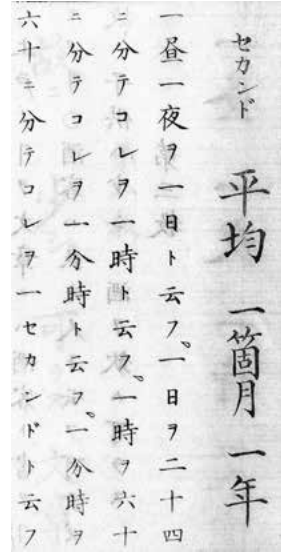 セカンド 平均 一箇月 一年
一昼一夜ヲ一日ト云フ。一日ヲ二十四
ニ分テコレヲ一時ト云フ。一時ヲ六十
ニ分テコレヲ一分時ト云フ。一分時ヲ
六十ニ分テコレヲ一セカンドト云フ